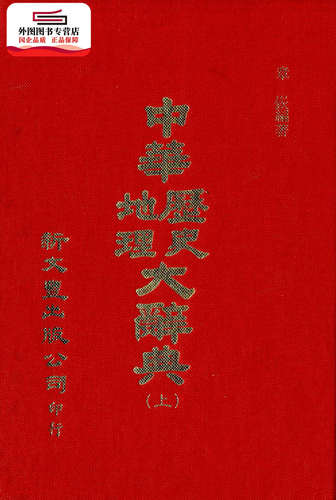 外图图书专营店
国企品质 正品保障
中華
歷史
地理
大辭典
(上)
新文豐出版公司印行